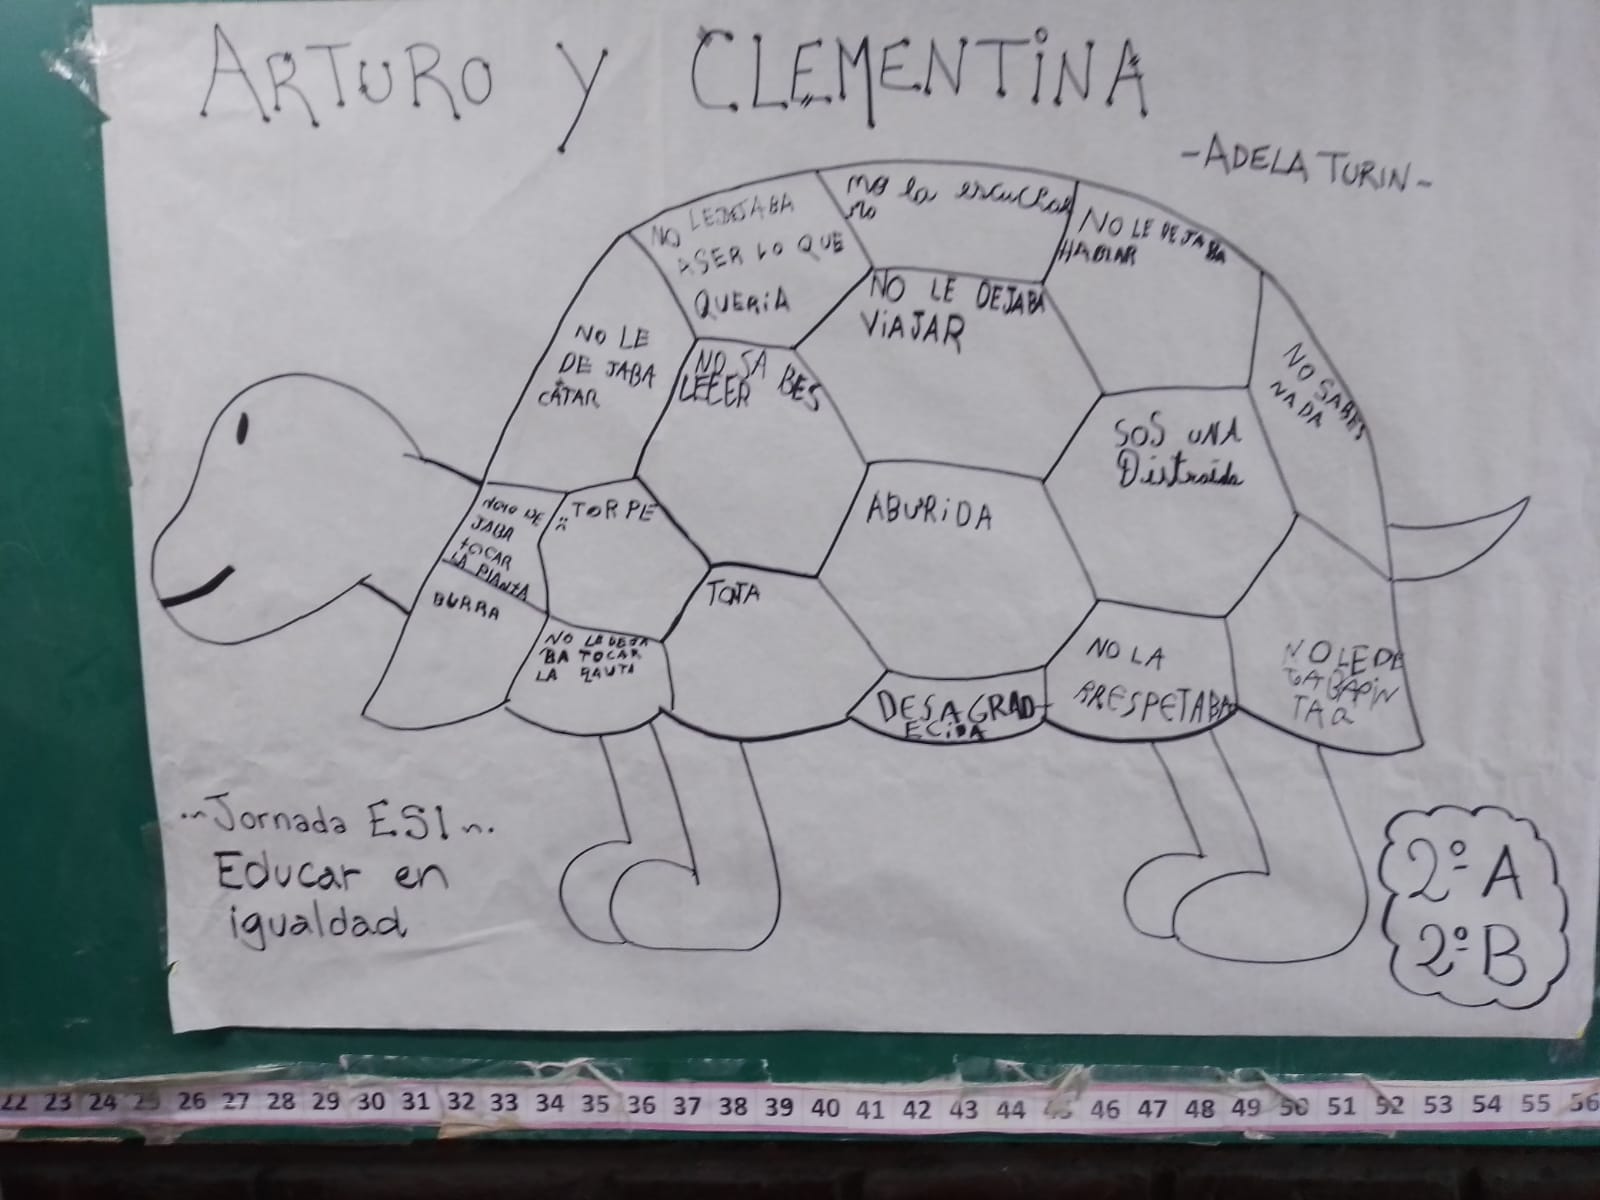 ARTURO Y CLEMENTINA
-ADELA TURIN-
NO LEDEJABA
ASER LO QUE
QUERIA
no la escucha
NO LE DEJABA
HABLAR
NO LE
DE JABA
CATAR
NO SA BES
LEEER
NO LE DEJABA
VIAJAR
NO SABES
NADA
SOS UNA
Distraida
DE
JABA
TOCAR
LA
TORPE
ABURIDA
BURRA
NO LE DEJA
BA TOCAR
LA
DESAGRAD-
ECIDA
NO LA
RRESPETABA
NO LE DE
PIN
TAR
~Jornada ESI~
Educar en
igualdad
2º A
2º B
22 23 24 25 26 27 28 29 30 31 32 33 34 35 36 37 38 39 40 41 42 43 44 45 46 47 48 49 50 51 52 53 54 55 56